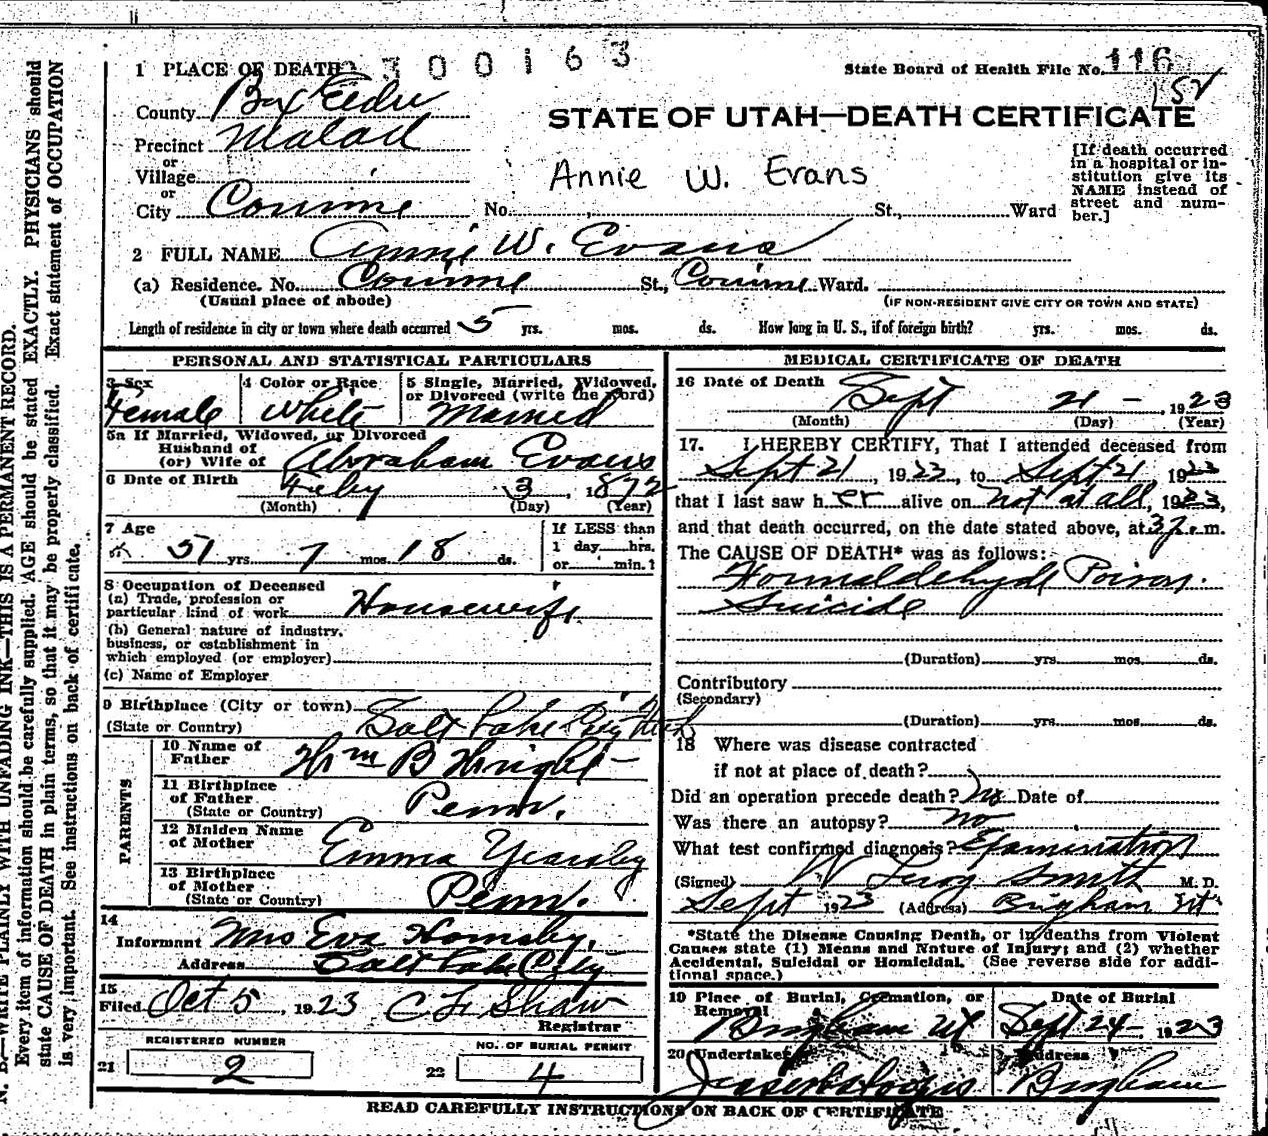 300163
1 PLACE OF DEATH
State Board of Health File No. 116
County Box Elder
152
STATE OF UTAH—DEATH CERTIFICATE
Precinct Malad
or
Village
or
City Corinne No. St., Ward
Annie W. Evans
[If death occurred
in a hospital or in-
stitution give its
NAME instead of
street and num-
ber.]
2 FULL NAME Annie W. Evans
(a) Residence. No. Corinne St., Corinne Ward.
(Usual place of abode) (IF NON-RESIDENT GIVE CITY OR TOWN AND STATE)
Length of residence in city or town where death occurred 5 yrs. mos. ds. How long in U. S., if of foreign birth? yrs. mos. ds.
PERSONAL AND STATISTICAL PARTICULARS
3 Sex 4 Color or Race 5 Single, Married, Widowed,
or Divorced (write the word)
Female White Married
5a If Married, Widowed, or Divorced
Husband of
(or) Wife of Abraham Evans
6 Date of Birth
Feby 3, 1872
(Month) (Day) (Year)
7 Age If LESS than
51 yrs. 7 mos. 18 ds. 1 day hrs.
or min.?
8 Occupation of Deceased
(a) Trade, profession or
particular kind of work Housewife
(b) General nature of industry,
business, or establishment in
which employed (or employer)
(c) Name of Employer
9 Birthplace (City or town)
(State or Country) Salt Lake City Utah
PARENTS
10 Name of
Father Wm B Wright
11 Birthplace
of Father
(State or Country) Penn.
12 Maiden Name
of Mother Emma Yearsley
13 Birthplace
of Mother
(State or Country) Penn.
14
Informant Mrs Eva Hornsby,
Address Salt Lake City
15
Filed Oct 5, 1923 C F Shaw
Registrar
REGISTERED NUMBER NO. OF BURIAL PERMIT
21 2 22 4
MEDICAL CERTIFICATE OF DEATH
16 Date of Death Sept 21 - , 1923
(Month) (Day) (Year)
17. I HEREBY CERTIFY, That I attended deceased from
Sept 21, 1923, to Sept 21 1923
that I last saw her alive on not at all, 1923,
and that death occurred, on the date stated above, at m.
The CAUSE OF DEATH* was as follows:
Formaldehyde Poison.
Suicide
(Duration) yrs. mos. ds.
Contributory
(Secondary)
(Duration) yrs. mos. ds.
18 Where was disease contracted
if not at place of death?
Did an operation precede death? No Date of
Was there an autopsy? No
What test confirmed diagnosis? Examination
(Signed) W Leroy Smith M. D.
Sept 1923 (Address) Brigham
*State the Disease Causing Death, or in deaths from Violent
Causes state (1) Means and Nature of Injury; and (2) whether
Accidental, Suicidal or Homicidal. (See reverse side for addi-
tional space.)
19 Place of Burial, Cremation, or Date of Burial
Removal
Brigham Ut Sept 24 - 1923
20 Undertaker Address
Brigham
READ CAREFULLY INSTRUCTIONS ON BACK OF CERTIFICATE
N. B.—WRITE PLAINLY WITH UNFADING INK—THIS IS A PERMANENT RECORD.
Every item of information should be carefully supplied. AGE should be stated EXACTLY. PHYSICIANS should
state CAUSE OF DEATH in plain terms, so that it may be properly classified. Exact statement of OCCUPATION
is very important. See instructions on back of certificate.